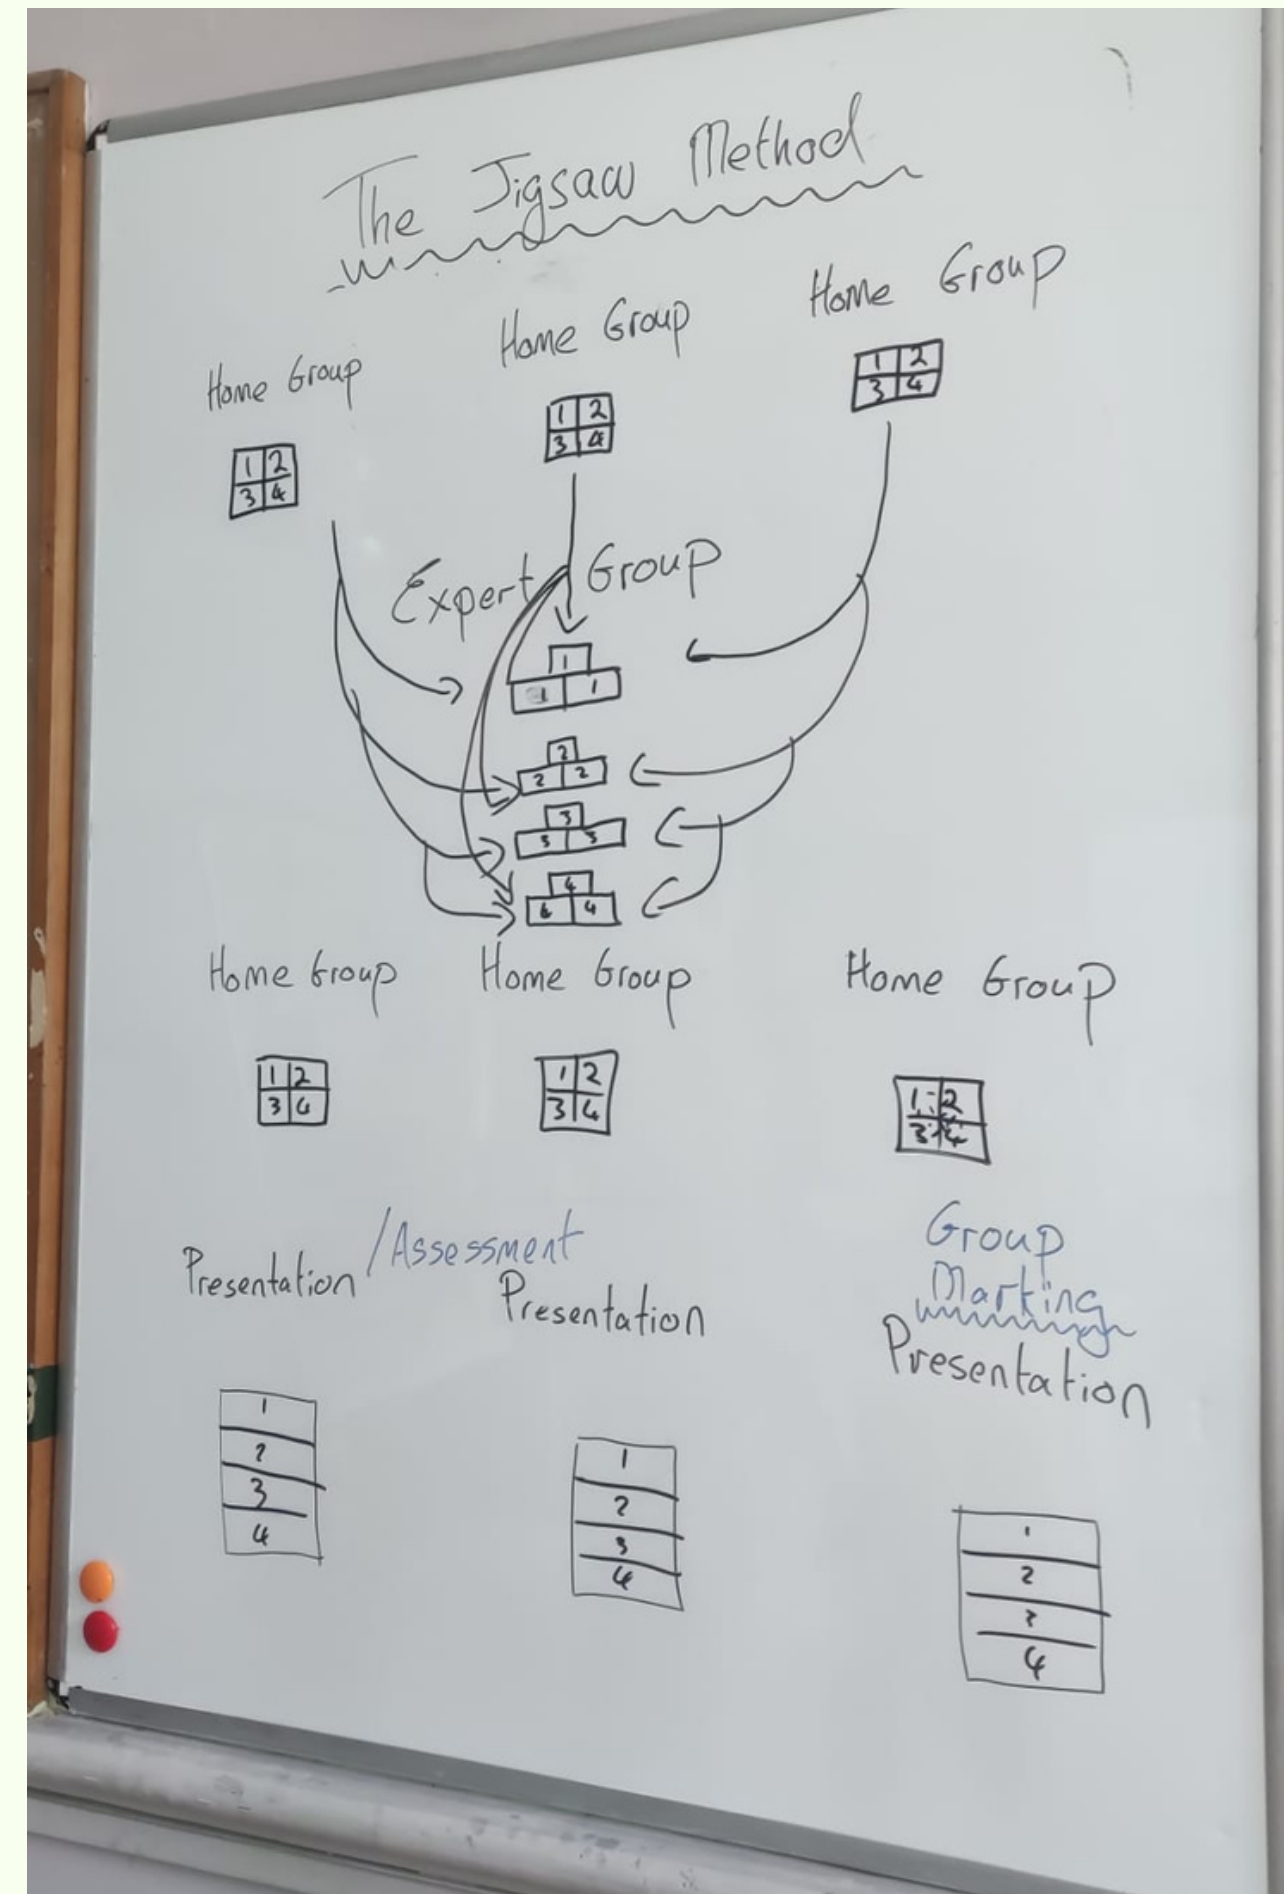 The Jigsaw Method
Home Group
Home Group
Home Group
1 2
3 4
1 2
3 4
1 2
3 4
Expert Group
1
1 1
2
2 2
3
3 3
4
4 4
Home Group
Home Group
Home Group
1 2
3 4
1 2
3 4
1 2
3 4
Presentation /Assessment
Presentation
Group
Marking
Presentation
1
2
3
4
1
2
3
4
1
2
3
4